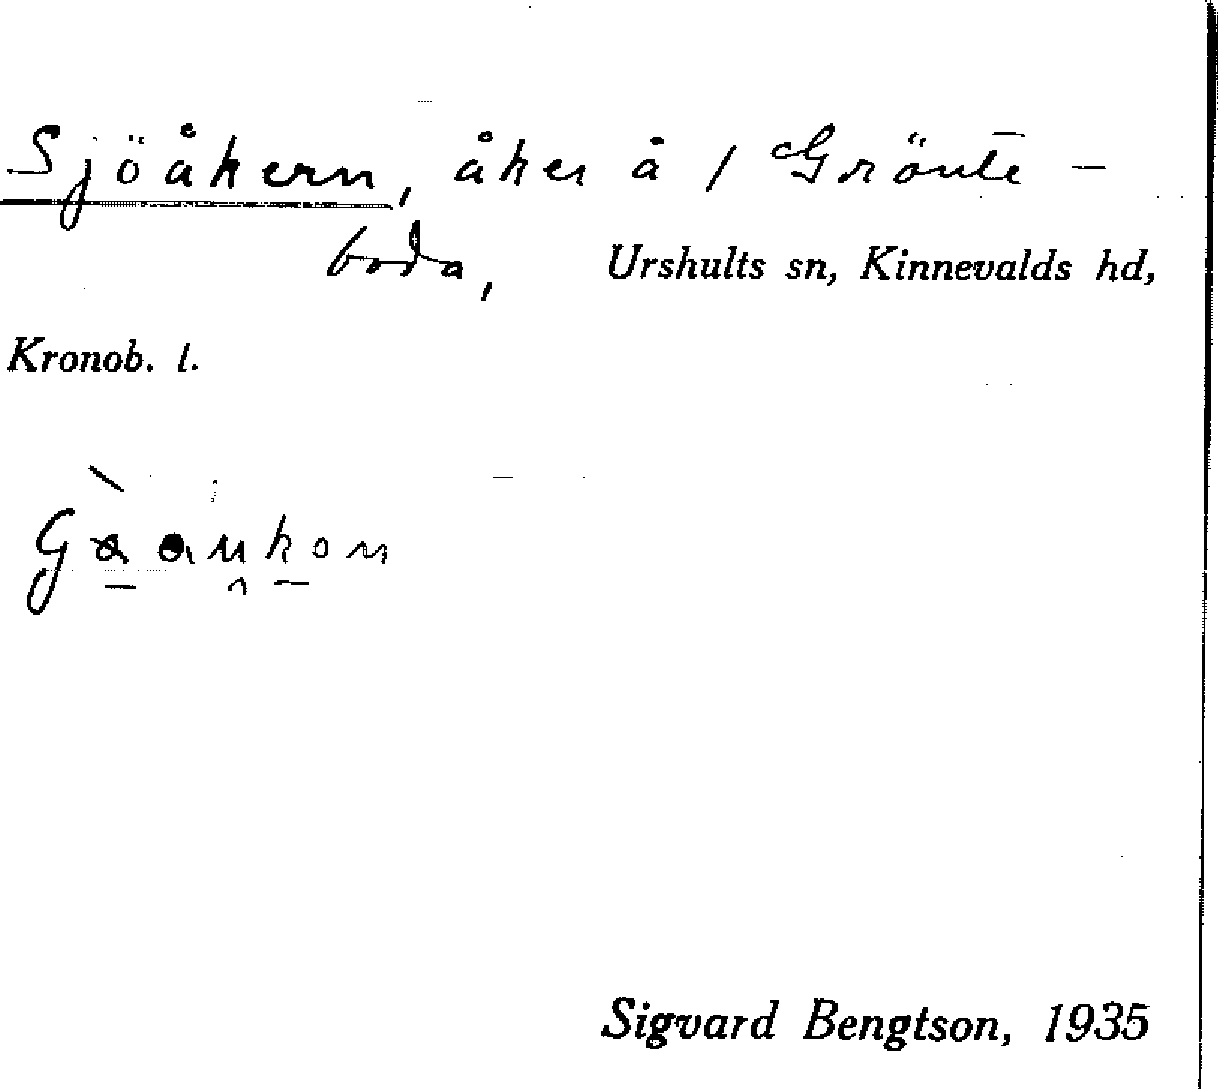 Sjöåkern, åker å 1 Grönte-
boda, Urshults sn, Kinnevalds hd,
Kronob. l.
Sigvard Bengtson, 1935